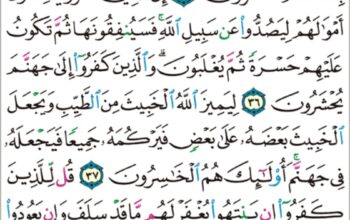 أَمْوَٰلَهُمْ لِيَصُدُّوا۟ عَن سَبِيلِ ٱللَّهِ ۚ فَسَيُنفِقُونَهَا ثُمَّ تَكُونُ
عَلَيْهِمْ حَسْرَةً ثُمَّ يُغْلَبُونَ ۗ وَٱلَّذِينَ كَفَرُوٓا۟ إِلَىٰ جَهَنَّمَ
يُحْشَرُونَ ٣٦ لِيَمِيزَ ٱللَّهُ ٱلْخَبِيثَ مِنَ ٱلطَّيِّبِ وَيَجْعَلَ
ٱلْخَبِيثَ بَعْضَهُۥ عَلَىٰ بَعْضٍ فَيَرْكُمَهُۥ جَمِيعًا فَيَجْعَلَهُۥ
فِى جَهَنَّمَ ۚ أُو۟لَٰٓئِكَ هُمُ ٱلْخَٰسِرُونَ ٣٧ قُل لِّلَّذِينَ
كَفَرُوٓا۟ إِن يَنتَهُوا۟ يُغْفَرْ لَهُم مَّا قَدْ سَلَفَ وَإِن يَعُودُوا۟